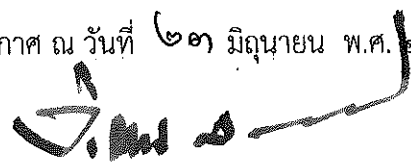 กาศ ณ วันที่ ๒๓ มิถุนายน พ.ศ.